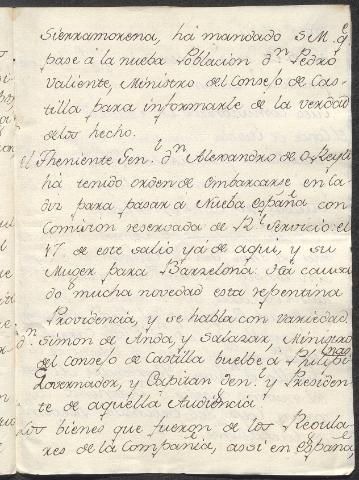 Sierramorena, há mandado S.M. q.e
pase á la nueba Poblacion d.n Pedro
Valiente, Ministro del Consejo de Cas-
tilla para informarle de la verdad
de los hecho.
El Theniente Gen.l d.n Alexandro de O Reyli
há tenido orden de embarcarse en Ca-
diz para pasar á Nueba españa con
Comision reservada de R.l Servicio: el
17. de este salio yá de aqui, y su
Muger para Barzelona. Há causa-
do mucha novedad esta repentina
Providencia, y se habla con variedad.
d.n Simon de Anda, y Salazar, Ministro
del Consejo de Castilla buelbe á Philipi-
nas
Governador, y Capitan Gen.l y Presiden-
te de aquella Audiencia.
Los bienes que fueron de los Regula-
res de la Compañia, assi en españa,